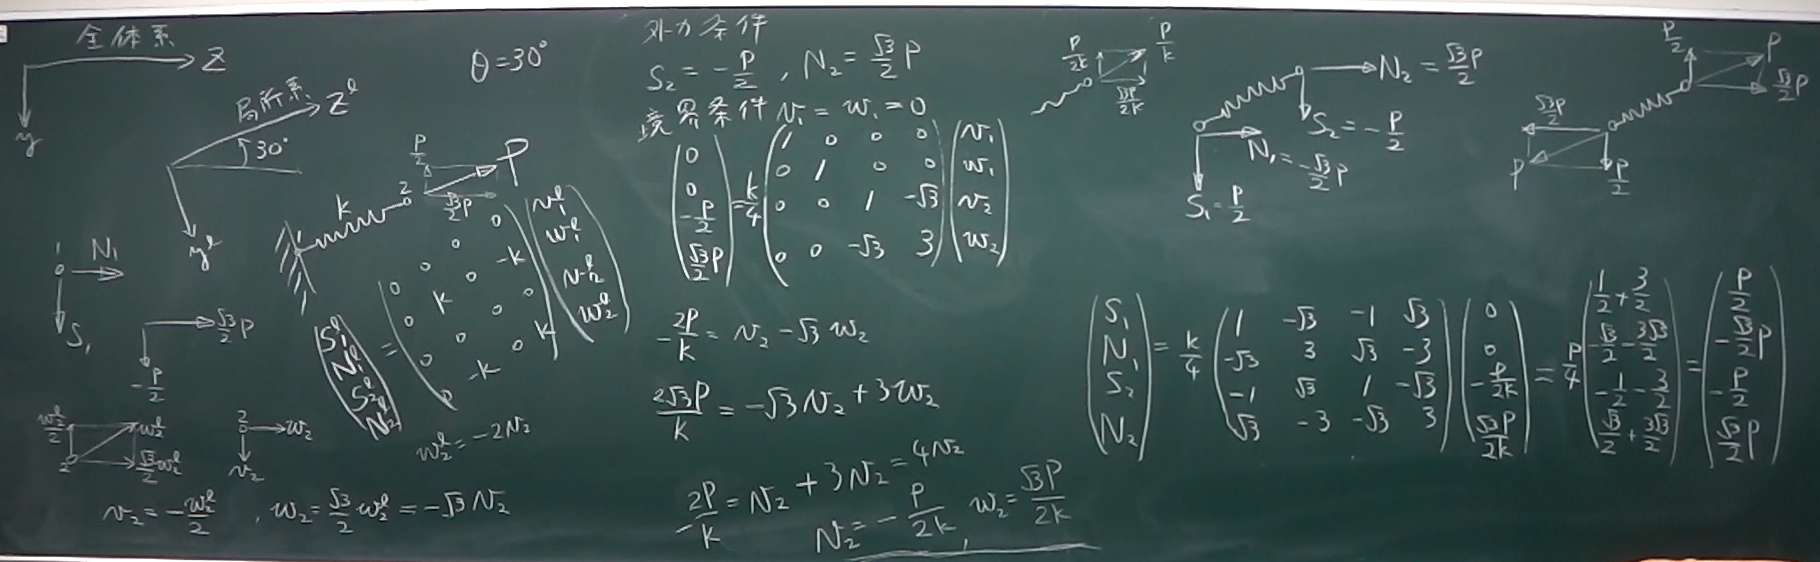 全体系
Z
y
θ=30°
局所系
Z^l
30°
y^l
k
2
P/2
P
√3/2 P
1
N₁
S₁
√3/2 P
-P/2
(S₁^l N₁^l S₂^l N₂^l) = (0 0 0 0 / 0 k 0 -k / 0 0 0 0 / 0 -k 0 k) (v₁^l w₁^l v₂^l w₂^l)
w₂^l/2
w₂^l
√3/2 w₂^l
2
2
w₂
v₂
w₂^l = -2v₂
v₂ = -w₂^l/2 , w₂ = √3/2 w₂^l = -√3 v₂
外力条件
S₂ = -P/2 , N₂ = √3/2 P
境界条件 v₁ = w₁ = 0
(0 0 -P/2 √3/2 P) = k/4 (1 0 0 0 / 0 1 0 0 / 0 0 1 -√3 / 0 0 -√3 3) (v₁ w₁ v₂ w₂)
-2P/k = v₂ - √3 w₂
2√3P/k = -√3 v₂ + 3w₂
-2P/k = v₂ + 3v₂ = 4v₂
v₂ = -P/2k , w₂ = √3P/2k
P/2k
P/k
√3P/2k
N₂ = √3P/2
S₂ = -P/2
N₁ = -√3/2 P
S₁ = P/2
P/2
P
√3/2 P
√3P/2
P
P/2
(S₁ N₁ S₂ N₂) = k/4 (1 -√3 -1 √3 / -√3 3 √3 -3 / -1 √3 1 -√3 / √3 -3 -√3 3) (0 0 -P/2k √3P/2k) = P/4 (1/2+3/2 -√3/2-3√3/2 -1/2-3/2 √3/2+3√3/2) = (P/2 -√3/2 P -P/2 √3/2 P)